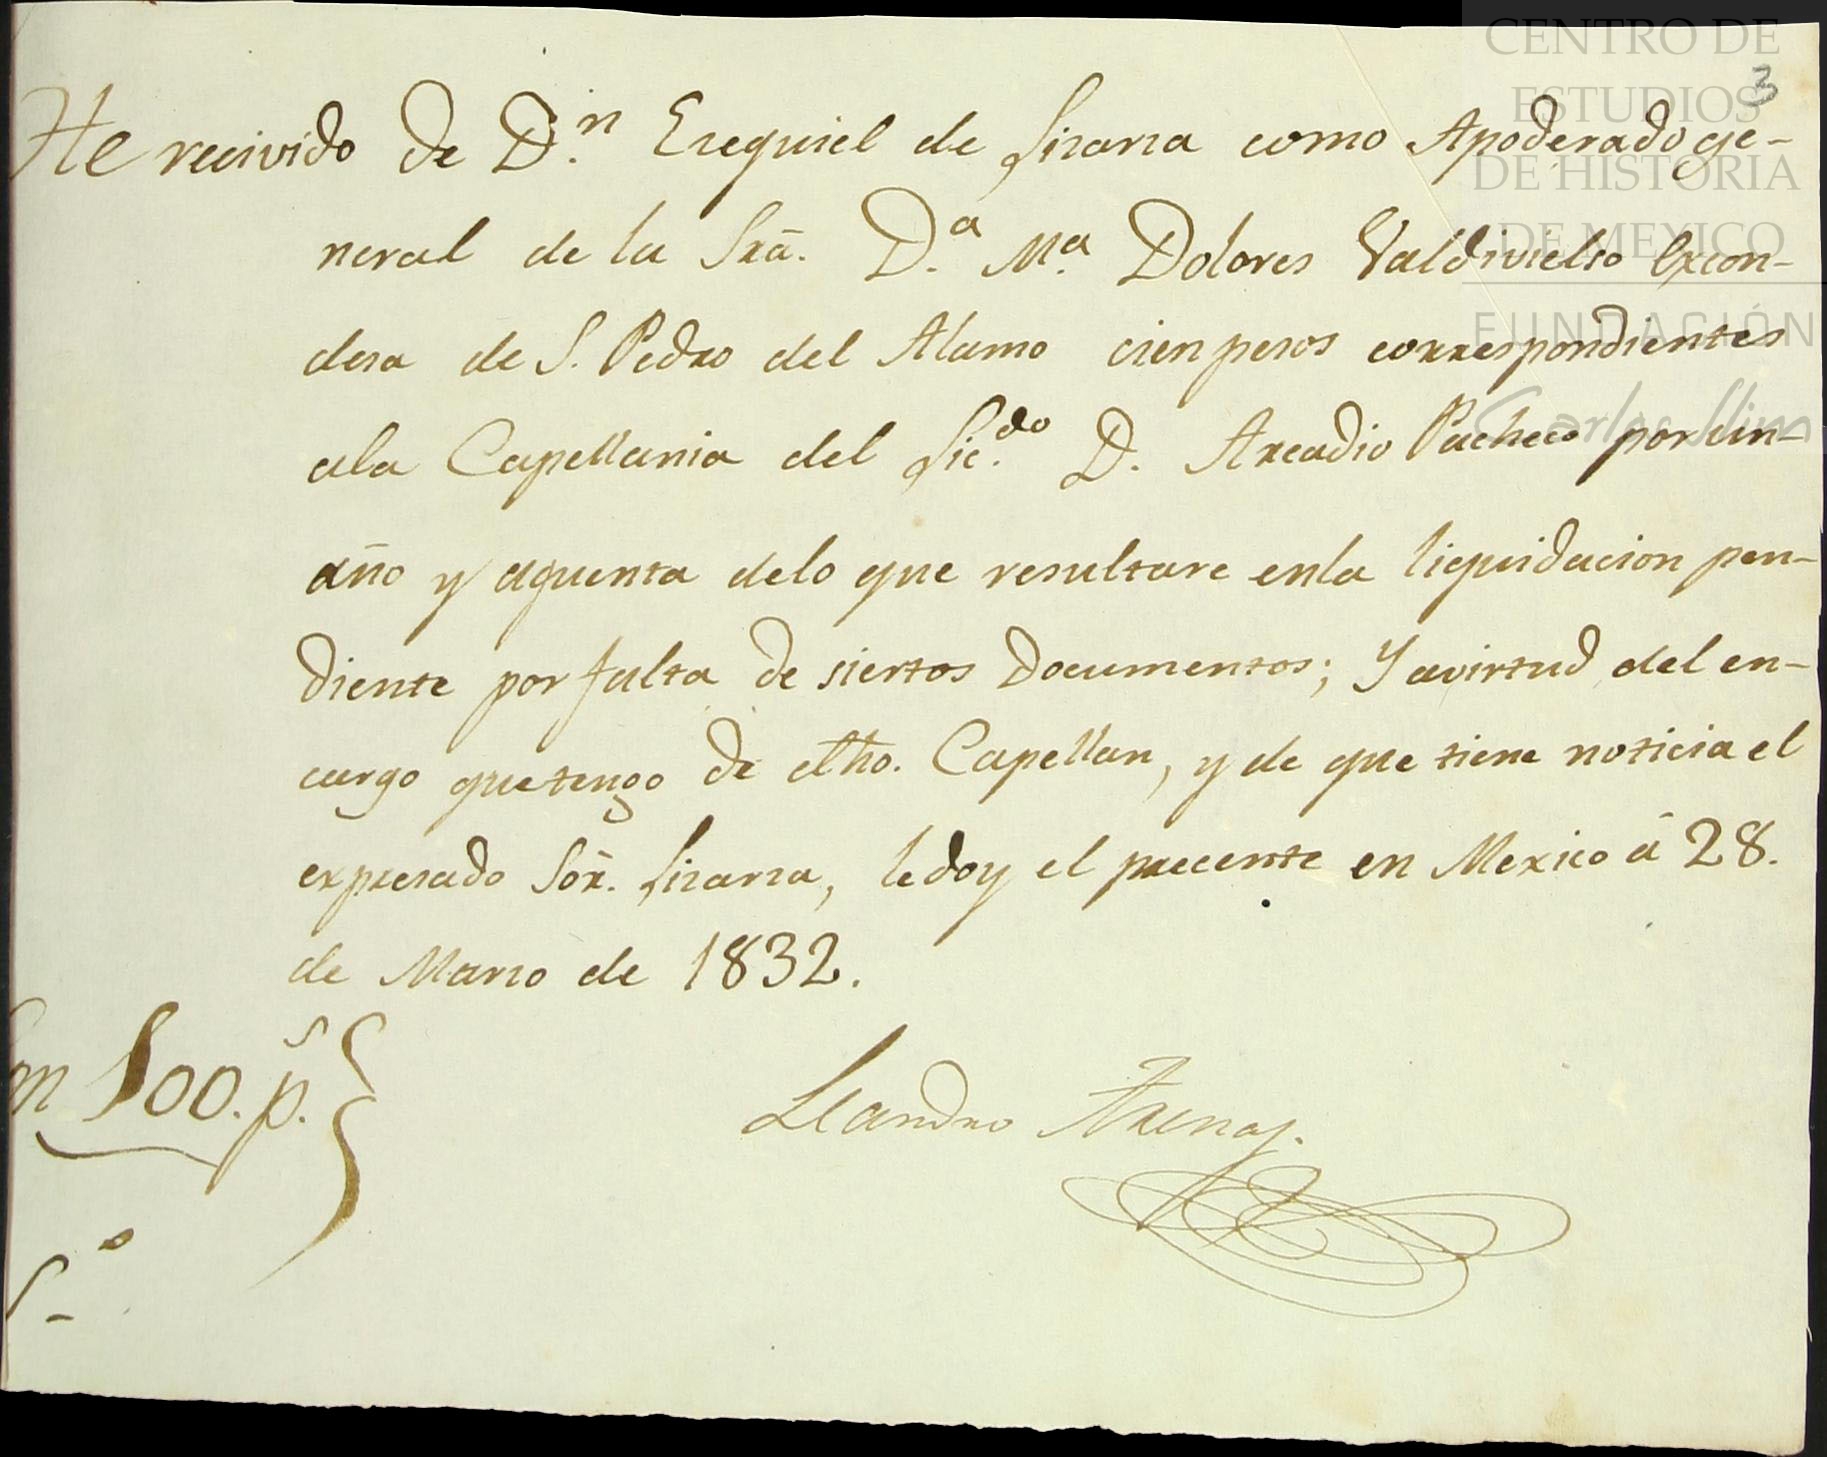 CENTRO DE
ESTUDIOS
DE HISTORIA
DE MEXICO
FUNDACIÓN
Carlos Slim
3
He recivido de D.n Ezequiel de Lizarza como Apoderado ge-
neral de la Sra. D.a M.a Dolores Valdivielso Excon-
desa de S. Pedro del Alamo cien pesos correspondientes
ala Capellania del Lic.do D. Arcadio Pacheco por un
año y aquenta delo que resultare enla liquidacion pen-
diente por falta de siertos Documentos; Y avirtud del en-
cargo que tengo de dho. Capellan, y de que tiene noticia el
expresado Sōr. Lizarza, le doy el precente en Mexico á 28.
de Marzo de 1832.
Son 100. p.s
Leandro Arenas.